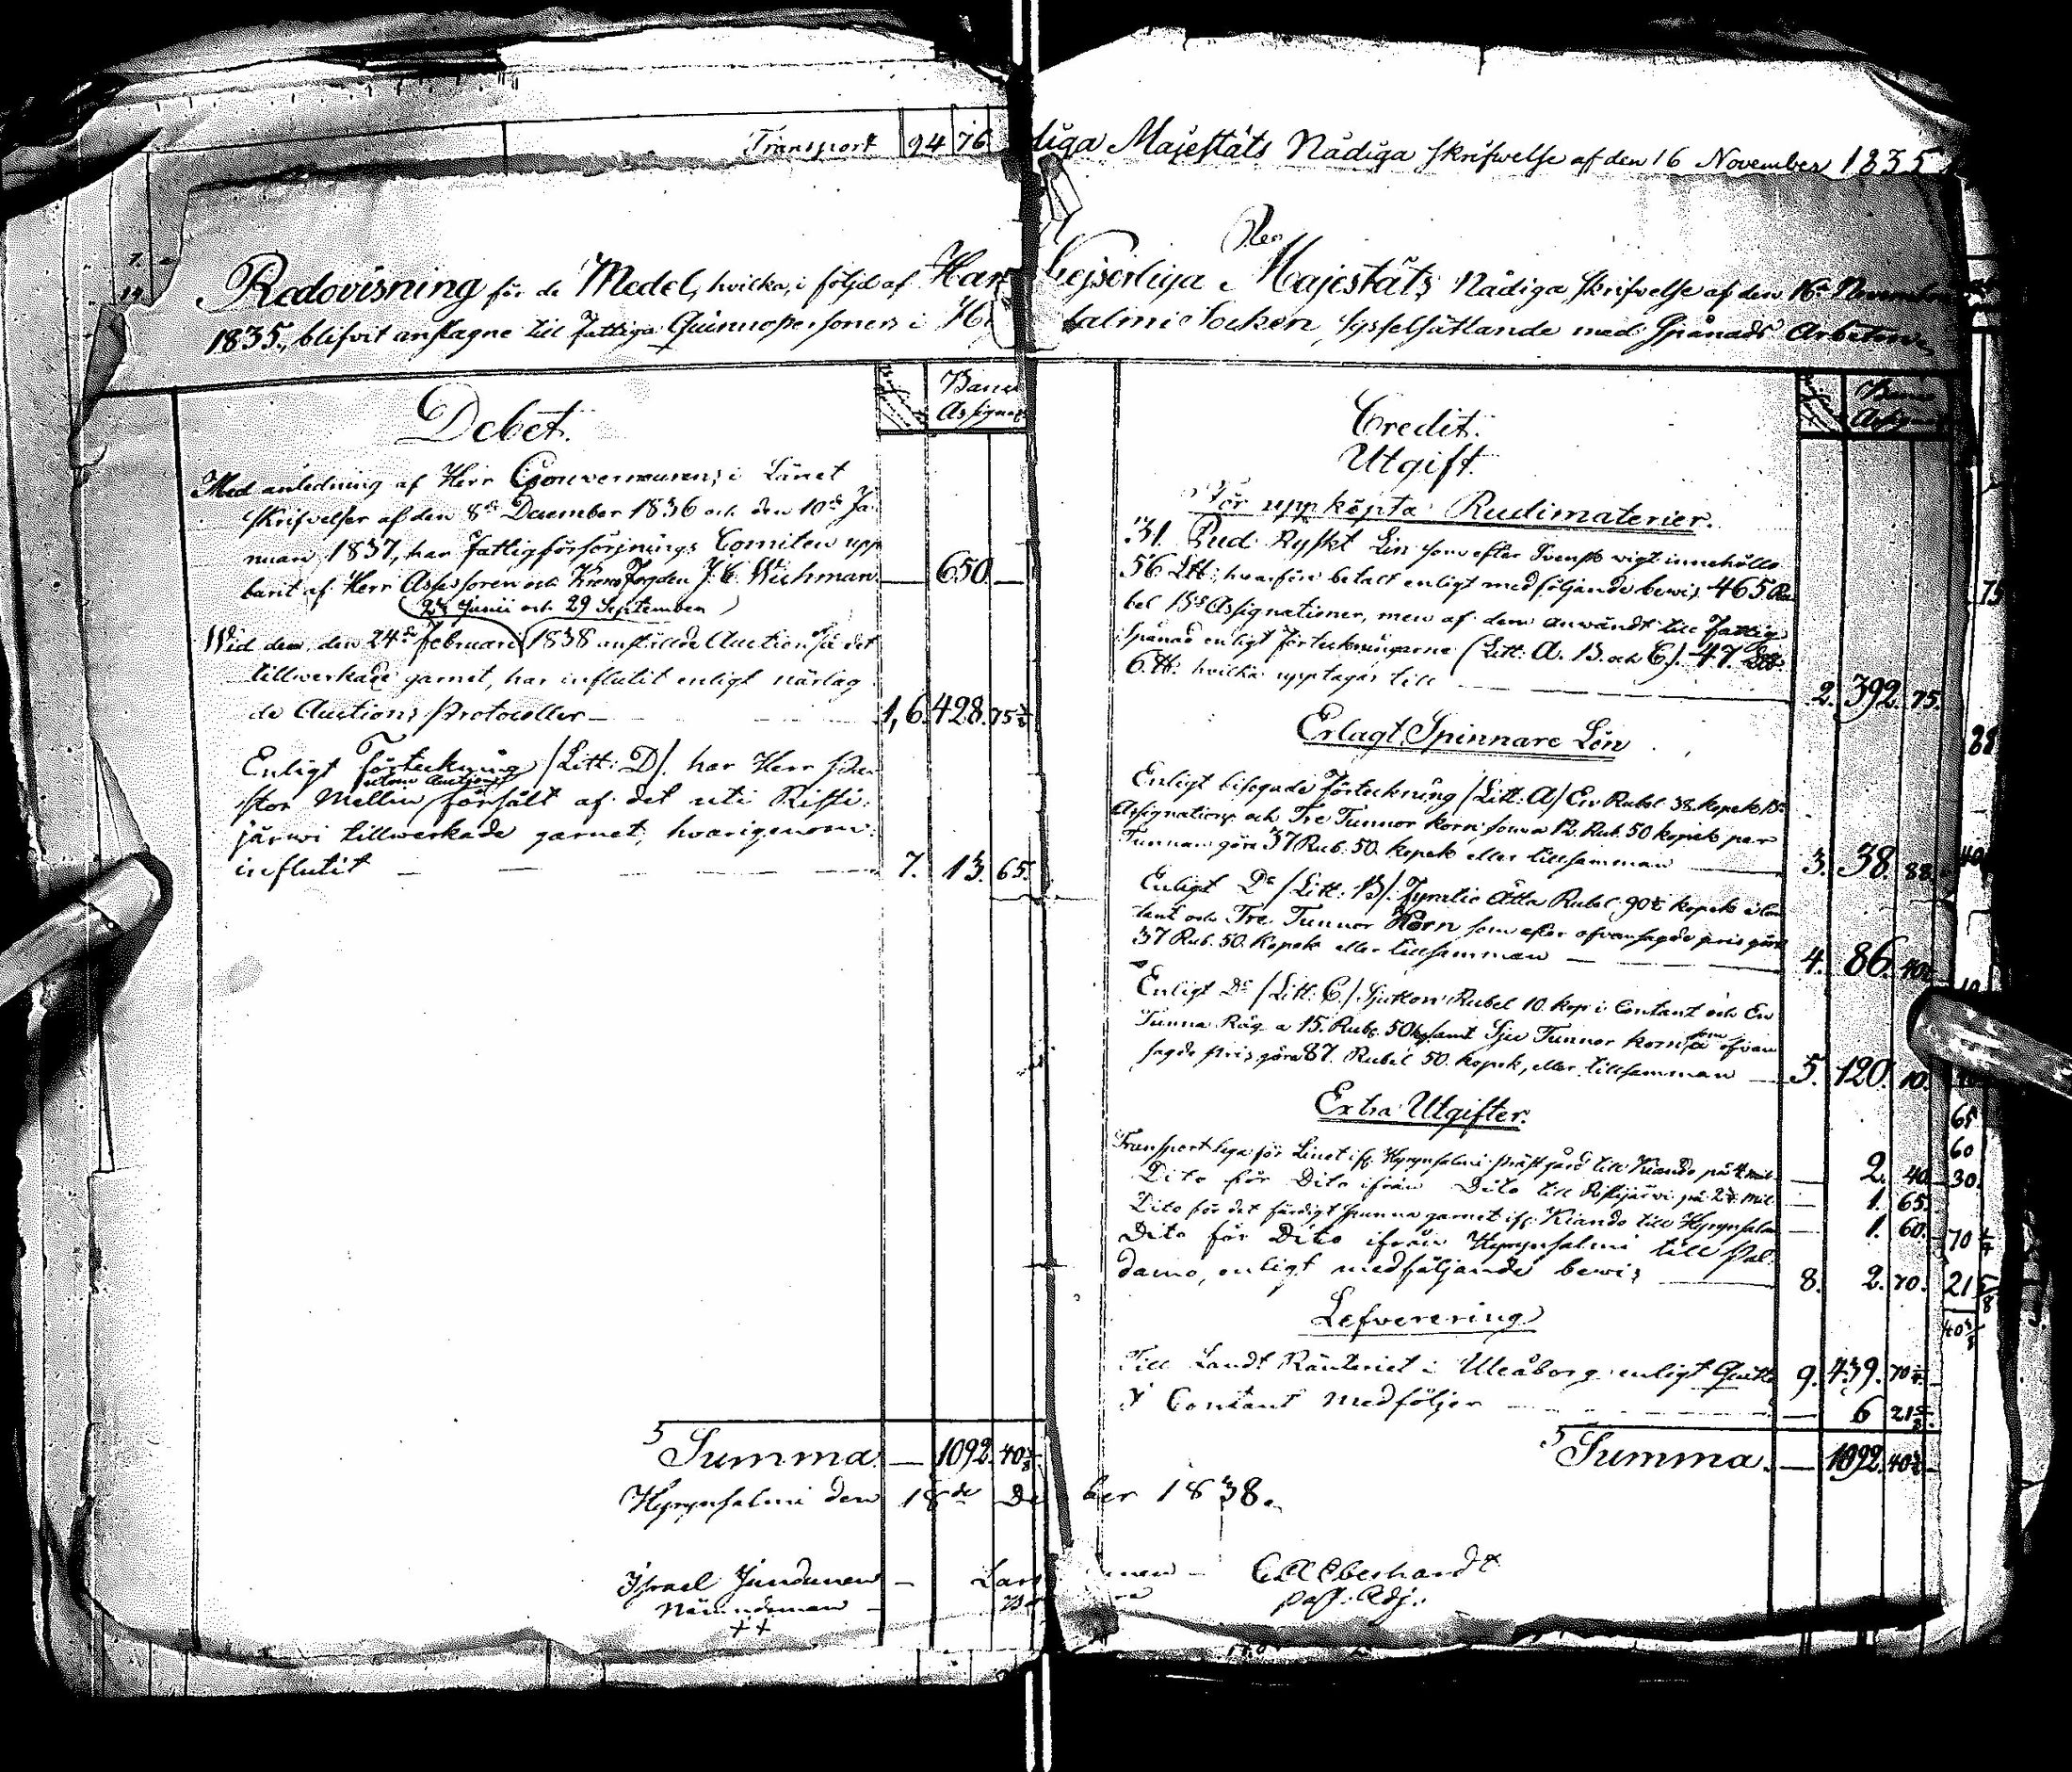 Transport 94 76
diga Majestäts Nådiga skrifwelse af den 16 November 1835
Redovisning för de Medel, hvilka, i följd af Hans Kejserliga Majestäts Nådiga skrifvelse af den 16de November
1835, blifvit anslagne till Fattiga Quinnopersoners i Hy salmi Socken, sysselsättande med Spånads Arbeten
Debet.
Banco Assignat
Med anledning af Herr Gouverneurens i Länet
skrifvelser af den 8de December 1836 och den 10de Ja-
nuari 1837, har Fattigförsörjnings Comiten upp
burit af Herr Assessoren och Krono Fogden J. C. Wichman — 650 —
(24 Junii och 29 September)
Wid dem, den 24de Februari 1838 anställde Auction på det
tillwerkade garnet, har influtit enligt närlag
de Auctions Protocoller — 1,6. 428. 75
Enligt Förteckning /Litt: D/. har Herr Pa
stor Mellin utom Auction försålt af det uti Risti-
järwi tillwerkade garnet, hvarigenom
influtit — 7. 13. 65.
Summa. — 1092. 40
Credit.
Utgift.
För uppköpta Rudimaterier.
31. Pud Ryskt Lin som efter Svensk wigt innehålla
56 Ltt: hvarföre betalt enligt medföljande bewis 465 Ru
bel Bco Assignationer, men af dem anwändt till Fattig
Spånad enligt Förteckningarne (Litt: A. B. och C.) 47. Ltt.
6. tt. hvilka upptagas till — 2. 392. 75.
Erlagt Spinnare Lön
Enligt bifogade Förteckning /Litt: A/ En Rubel 38. kopek Bco
Assignations och Tre Tunnor korn som a 12. Rub. 50 kopek per
Tunnan göra 37 Rub. 50. kopek eller tillsamman — 3. 38. 88.
Enligt Do /Litt: B/. Fyratio Åtta Rubel 90 kopek i Con
tant och Tre Tunnor Korn som efter ofvansagde pris göra
37 Rub. 50. kopek eller tillsamman — 4. 86. 40
Enligt Do /Litt: C./ Sjutton Rubel 10. kop i Contant och En
Tunna Råg a 15. Rub. 50 k samt Sju Tunnor korn som a ofvan
sagde pris göra 87. Rubel 50. kopek, eller tillsamman — 5. 120. 10.
Extra Utgifter.
Transport lega för Linet ifr. Hyrynsalmi Prästgård till Kiando på 4 mil — 2. 40.
Dito för Dito ifrån Dito till Ristijärwi på 2¾ mil — 1. 65.
Dito för det färdigt spunna garnet ifr. Kiando till Hyrynsalmi — 1. 60.
Dito för Dito ifrån Hyrynsalmi till Pal-
damo, enligt medföljande bewis — 8. 2. 70.
Lefverering
Till Landt Ränteriet i Uleåborg enligt Quitto 9. 439. 70
I Contant Medföljer — 6 21⅝
Summa. — 1092. 40
Hyrynsalmi den 18de De ber 1838.
Israel Jundunen — Lars nen — C A Eberhardt
Nämndeman — Past. Adj.
++